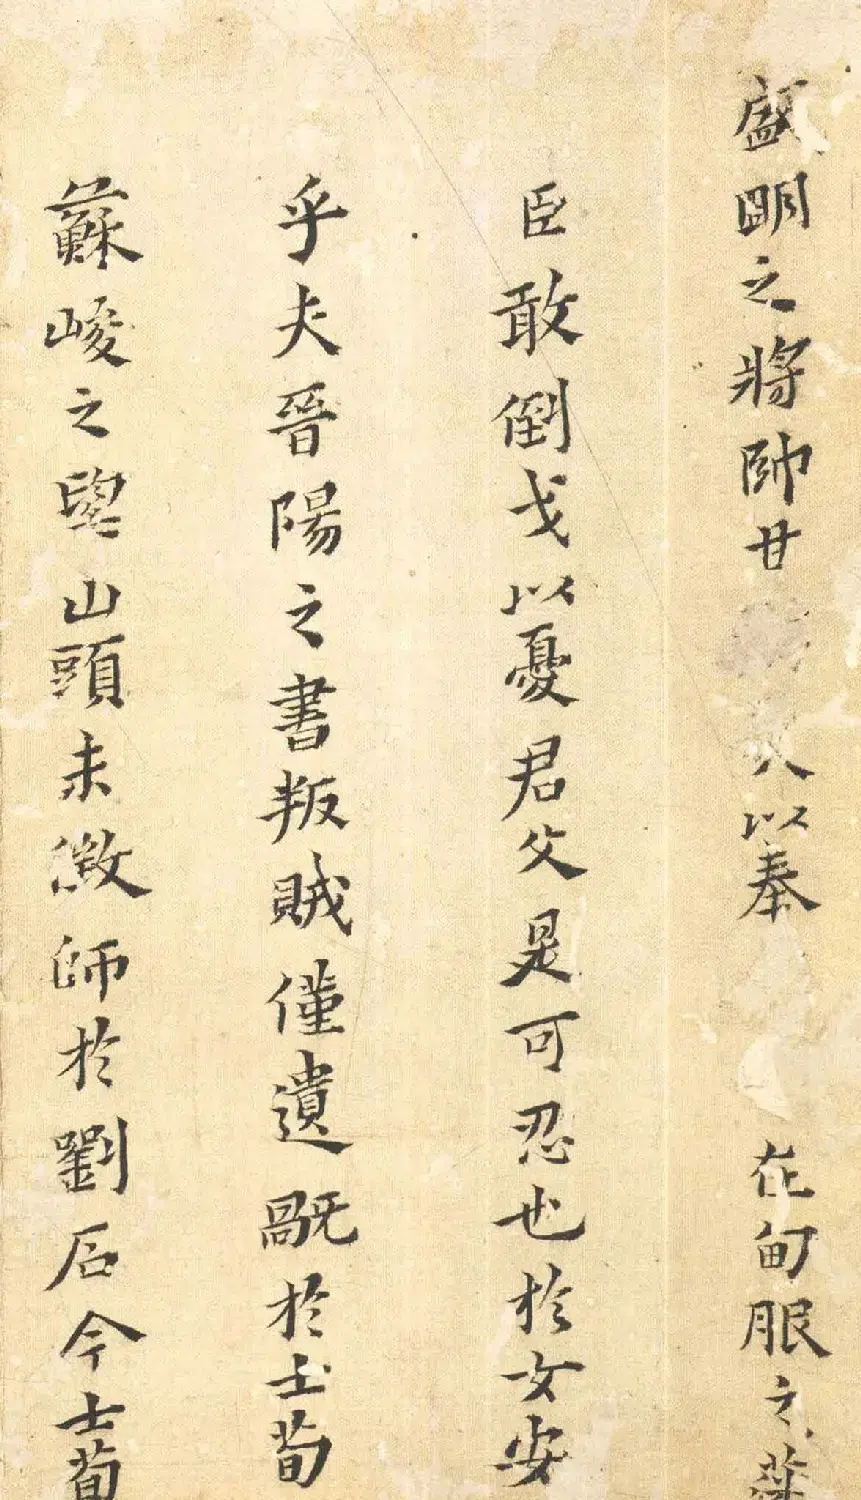 盛明之將帥甘以奉在甸服之
臣敢倒戈以憂君父是可忍也於女安
乎夫晉陽之書叛賊僅遺旤於士荀
蘇峻之望山頭未徵師於劉后今士荀